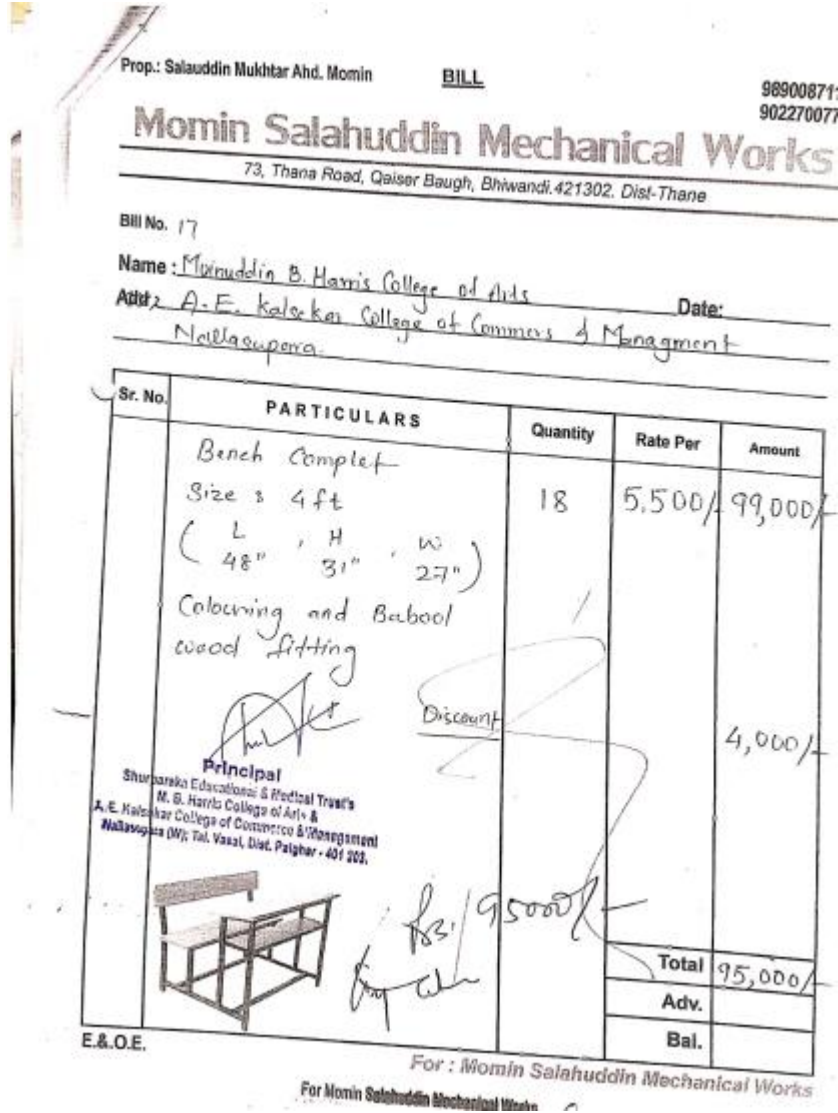 Prop.: Salauddin Mukhtar Ahd. Momin BILL 989008711
902270077
Momin Salahuddin Mechanical Works
73, Thana Road, Qaiser Baugh, Bhiwandi.421302. Dist-Thane
Bill No. 17
Name : Moinuddin B. Harris College of Arts Date:
Add: A.E. Kalsekar College of Commers & Managment
Nallasuparra.
Sr. No. PARTICULARS Quantity Rate Per Amount
Bench Complet
Size : 4 ft 18 5,500/- 99,000/-
( L , H , W
48" 31" 27" )
Colouring and Babool
wood fitting
Discount 4,000/-
Principal
Shurparaka Educational & Medical Trust's
M. B. Harris College of Arts &
A. E. Kalsekar College of Commerce & Management
Nallasopara (W); Tal. Vasai, Dist. Palghar - 401 203.
Rs. 95000/-
Total 95,000/-
Adv.
Bal.
E.&.O.E.
For : Momin Salahuddin Mechanical Works
For Momin Salahuddin Mechanical Works